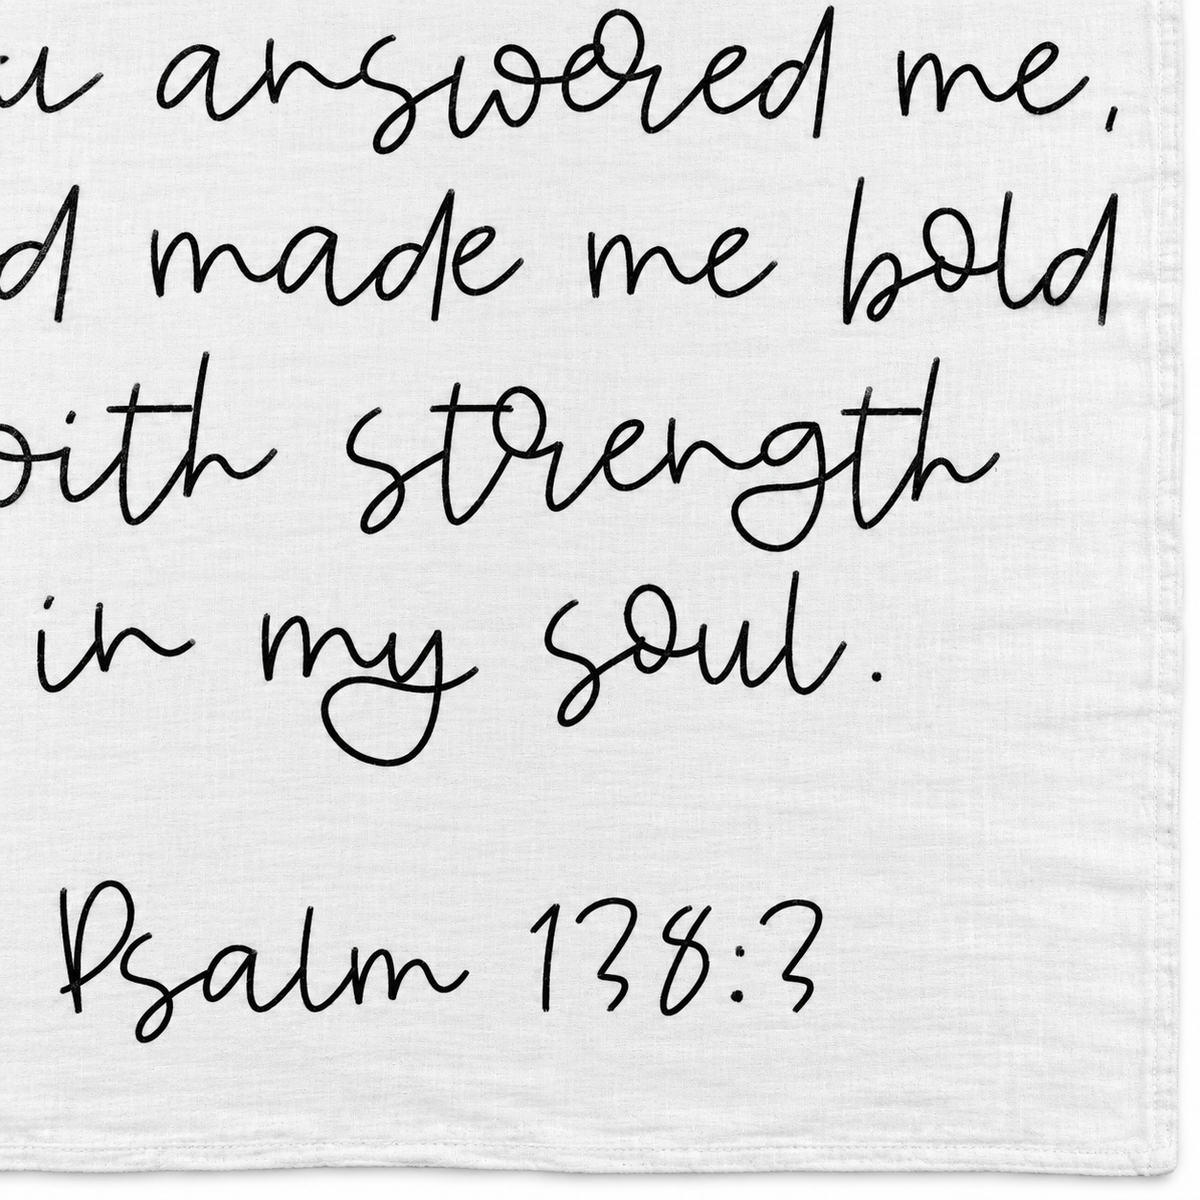 u answered me,
d made me bold
with strength
in my soul.
Psalm 138:3